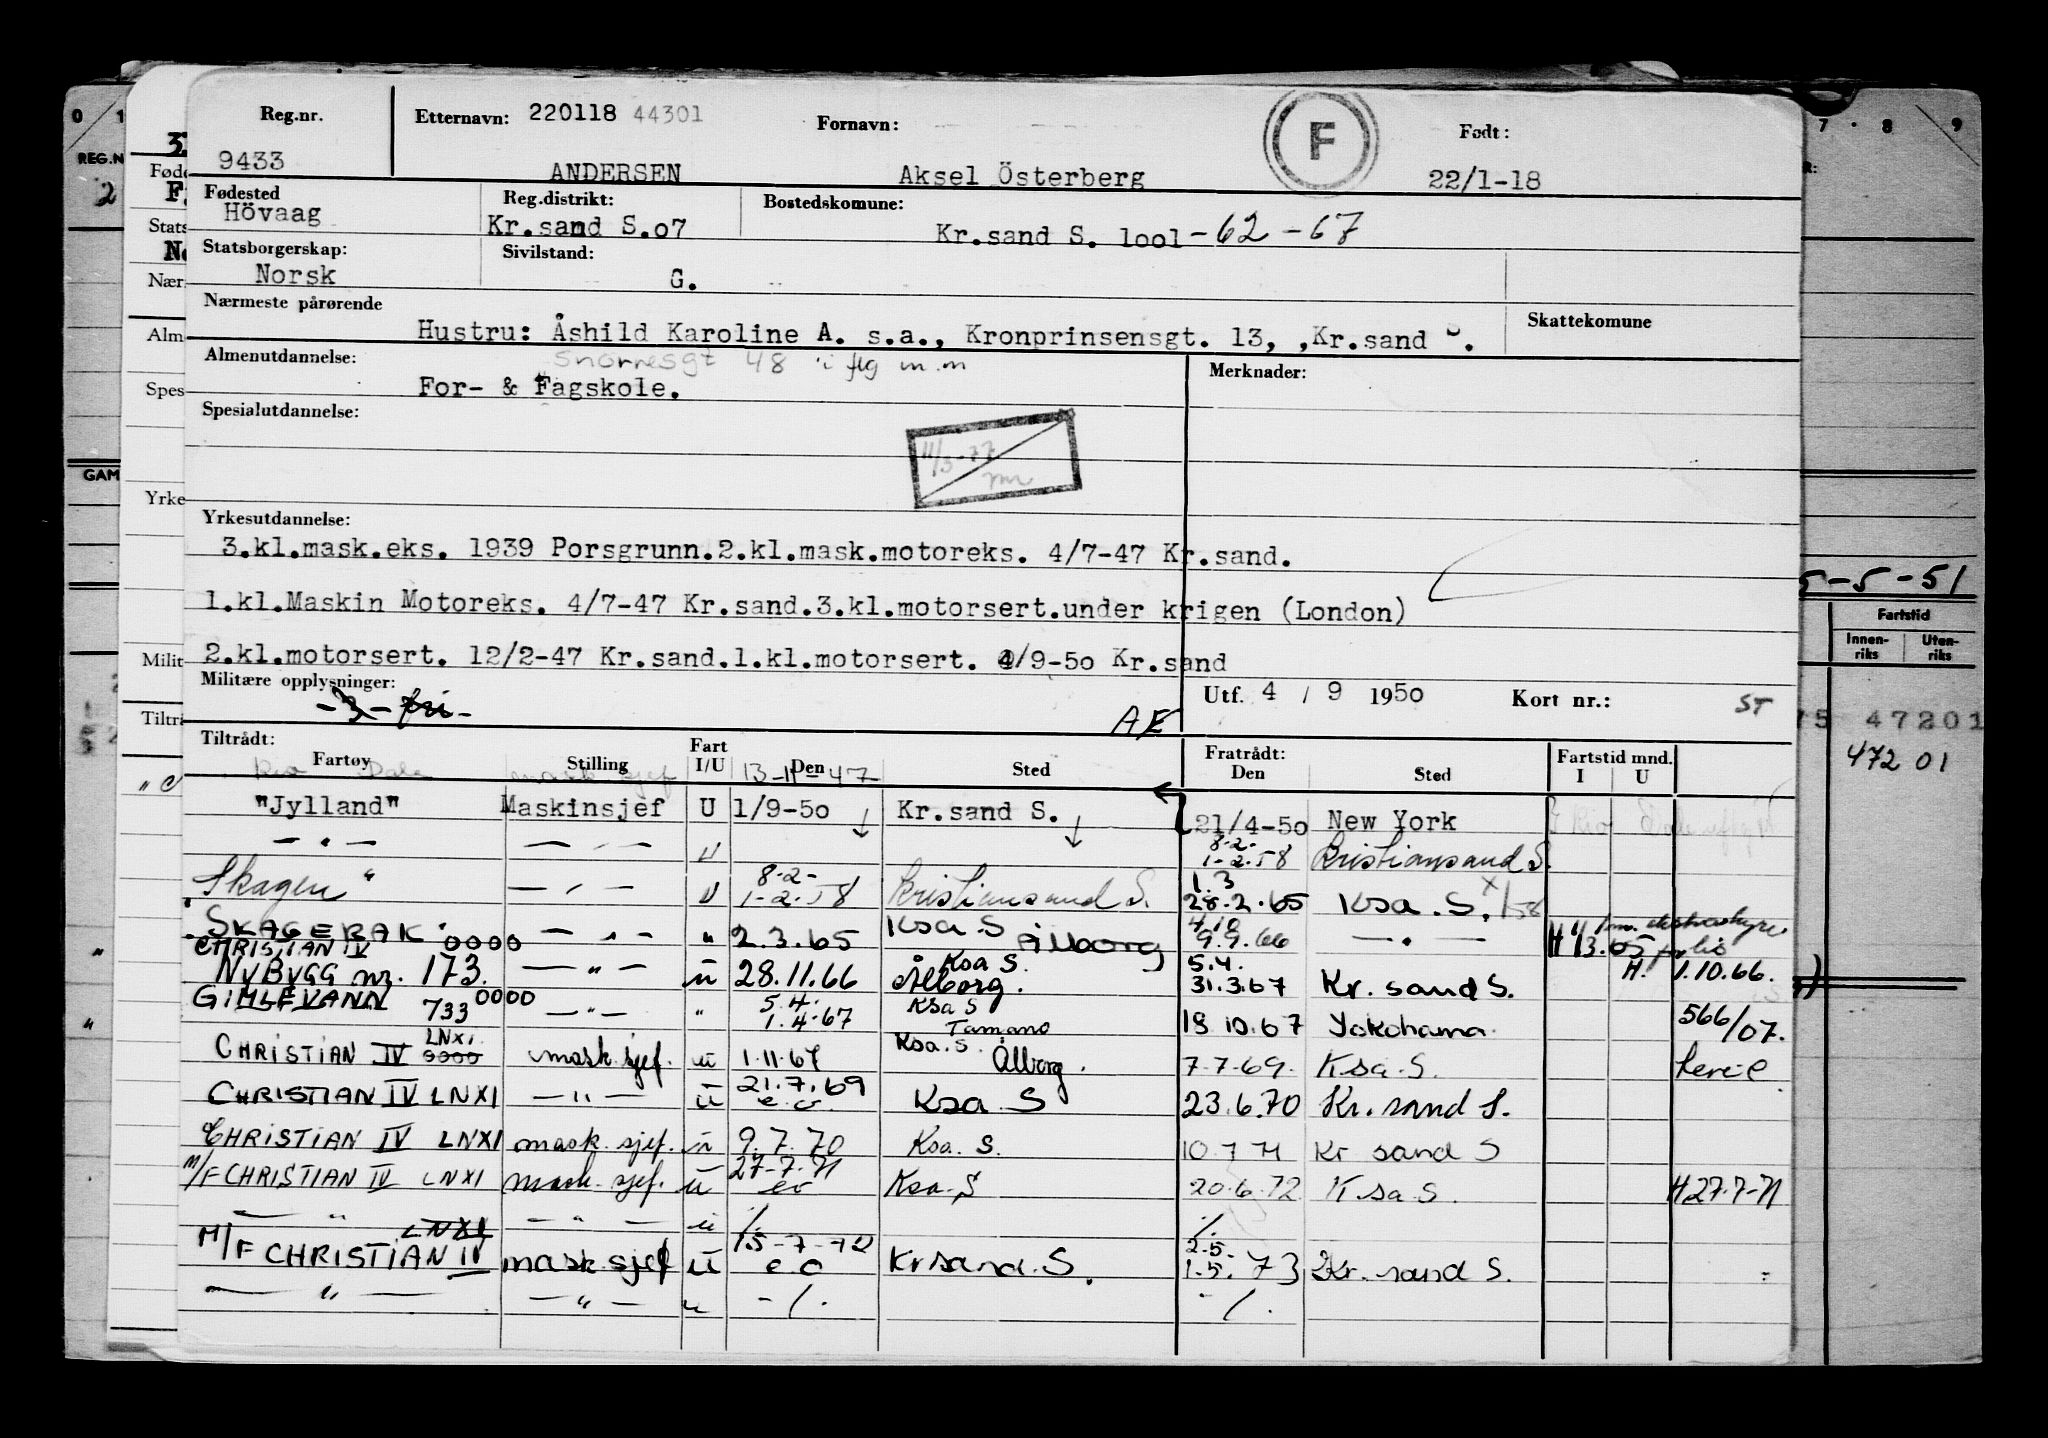 Reg.nr. Etternavn: 220118 44301 Fornavn: F Født:
9433 ANDERSEN Aksel Österberg 22/1-18
Fødested Reg.distrikt: Bostedskomune:
Hövaag Kr.sand S.o7 Kr.sand S. lool-62-67
Statsborgerskap: Sivilstand:
Norsk G.
Nærmeste pårørende Skattekomune
Hustru: Åshild Karoline A. s.a., Kronprinsensgt. 13, ,Kr.sand
Almenutdannelse: Snorresgt 48 i flg m.m Merknader:
For- & Fagskole.
Spesialutdannelse:
11/3-77
Yrkesutdannelse:
3.kl.mask.eks. 1939 Porsgrunn.2.kl.mask.motoreks. 4/7-47 Kr.sand.
1.kl.Maskin Motoreks. 4/7-47 Kr.sand.3.kl.motorsert.under krigen (London)
2.kl.motorsert. 12/2-47 Kr.sand.1.kl.motorsert. 4/9-5o Kr.sand
Militære opplysninger: Utf. 4 / 9 1950 Kort nr.: ST
-3- fri- AE
Tiltrådt: Fratrådt: Fartstid mnd.
Fartøy Stilling Fart I/U Den Sted Den Sted I U
13-11-47
"Jylland" Maskinsjef U 1/9-5o Kr.sand S. 21/4-5o New York
— " — — " — U 8.2- 1-2.58 Kristiansand S.
Skagen" — " — U 8-2- 1-2.58 Kristiansand S. 1.3 28.2.65 Ksa. S.
"SKAGERAK" — " — " 2.3.65 Ksa. S Ålborg 9.9.66 — " — H 1/3.65
CHRISTIAN IV 0000
NYBYGG nr. 173. — " — u 28.11.66 Ksa S. Ålborg. 5.4. 31.3.67 Kr. sand S. H. 1.10.66.
GIMLEVANN 733 0000 — " — " 5.4. 1.4.67 Ksa S Tamano 18.10.67 Yokohama 566/07.
CHRISTIAN IV LNXI 0000 mask.sjef. u 1.11.67 Ksa. S. Ålborg. 7-7-69. Ksa. S.
CHRISTIAN IV LNXI — " — u 21.7.69 e.o Ksa S 23.6.70 Kr. sand S.
CHRISTIAN IV LNXI mask.sjef. u 9.7.70 Ksa. S. 10.7 71 Kr sand S
M/F CHRISTIAN IV LNXI mask.sjef. u 27-7-71 eo Ksa. S 20.6.72 Ksa S. H 27.7-71
— " — — " — u ./. ./.
M/F CHRISTIAN IV LNXI mask.sjef u 15-7-72 e o Kr sand. S. 2.5. 1.5. 73 Kr. sand S.
— " — — " — u -/. -/.
0 1
REG.N
2
GAM
Føde
Stats
Nær
Alm
Spes
Yrke
Milit
Tiltrå
7 8 9
5-5-51
Fartstid
Innen-riks Uten-riks
75 47201
472 01